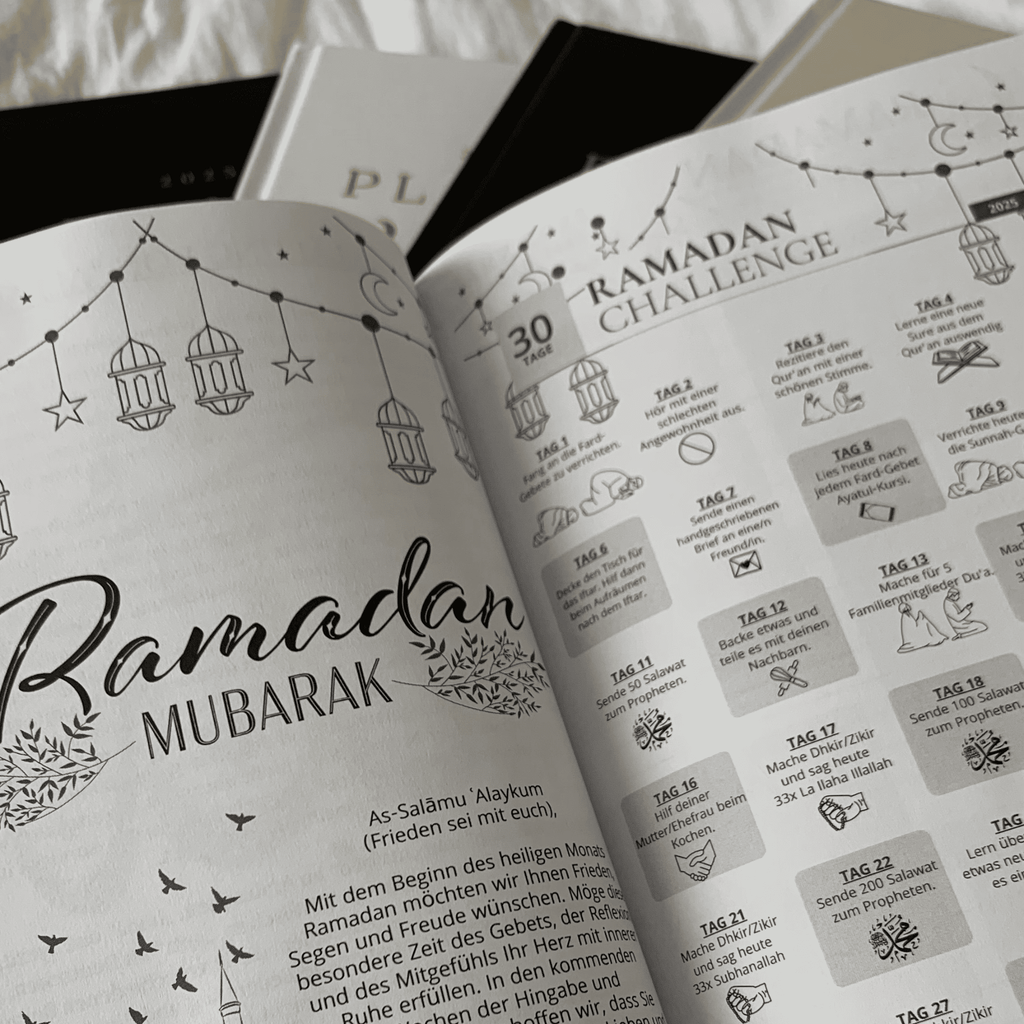 2025
PL
Ramadan
MUBARAK
As-Salāmu ʿAlaykum
(Frieden sei mit euch),
Mit dem Beginn des heiligen Monats
Ramadan möchten wir Ihnen Frieden,
Segen und Freude wünschen. Möge diese
besondere Zeit des Gebets, der Reflexion
und des Mitgefühls Ihr Herz mit innerer
Ruhe erfüllen. In den kommenden
Wochen der Hingabe und
hoffen wir, dass Sie
RAMADAN
CHALLENGE
2025
30
TAGE
TAG 1
Fang an die Fard-
Gebete zu verrichten.
TAG 2
Hör mit einer
schlechten
Angewohnheit aus.
TAG 3
Rezitiere den
Qur'an mit einer
schönen Stimme.
TAG 4
Lerne eine neue
Sure aus dem
Qur'an auswendig
TAG 6
Decke den Tisch für
das Iftar. Hilf dann
beim Aufräumen
nach dem Iftar.
TAG 7
Sende einen
handgeschriebenen
Brief an eine/n
Freund/in.
TAG 8
Lies heute nach
jedem Fard-Gebet
Ayatul-Kursi.
TAG 9
Verrichte heute
die Sunnah-G
TAG 11
Sende 50 Salawat
zum Propheten.
TAG 12
Backe etwas und
teile es mit deinen
Nachbarn.
TAG 13
Mache für 5
Familienmitglieder Du'a.
TAG 16
Hilf deiner
Mutter/Ehefrau beim
Kochen.
TAG 17
Mache Dhkir/Zikir
und sag heute
33x La Ilaha Illallah
TAG 18
Sende 100 Salawat
zum Propheten.
TAG 21
Mache Dhkir/Zikir
und sag heute
33x Subhanallah
TAG 22
Sende 200 Salawat
zum Propheten.
TAG
Lern übe
etwas neu
es ein
TAG 27
Mache Dhkir/Zikir